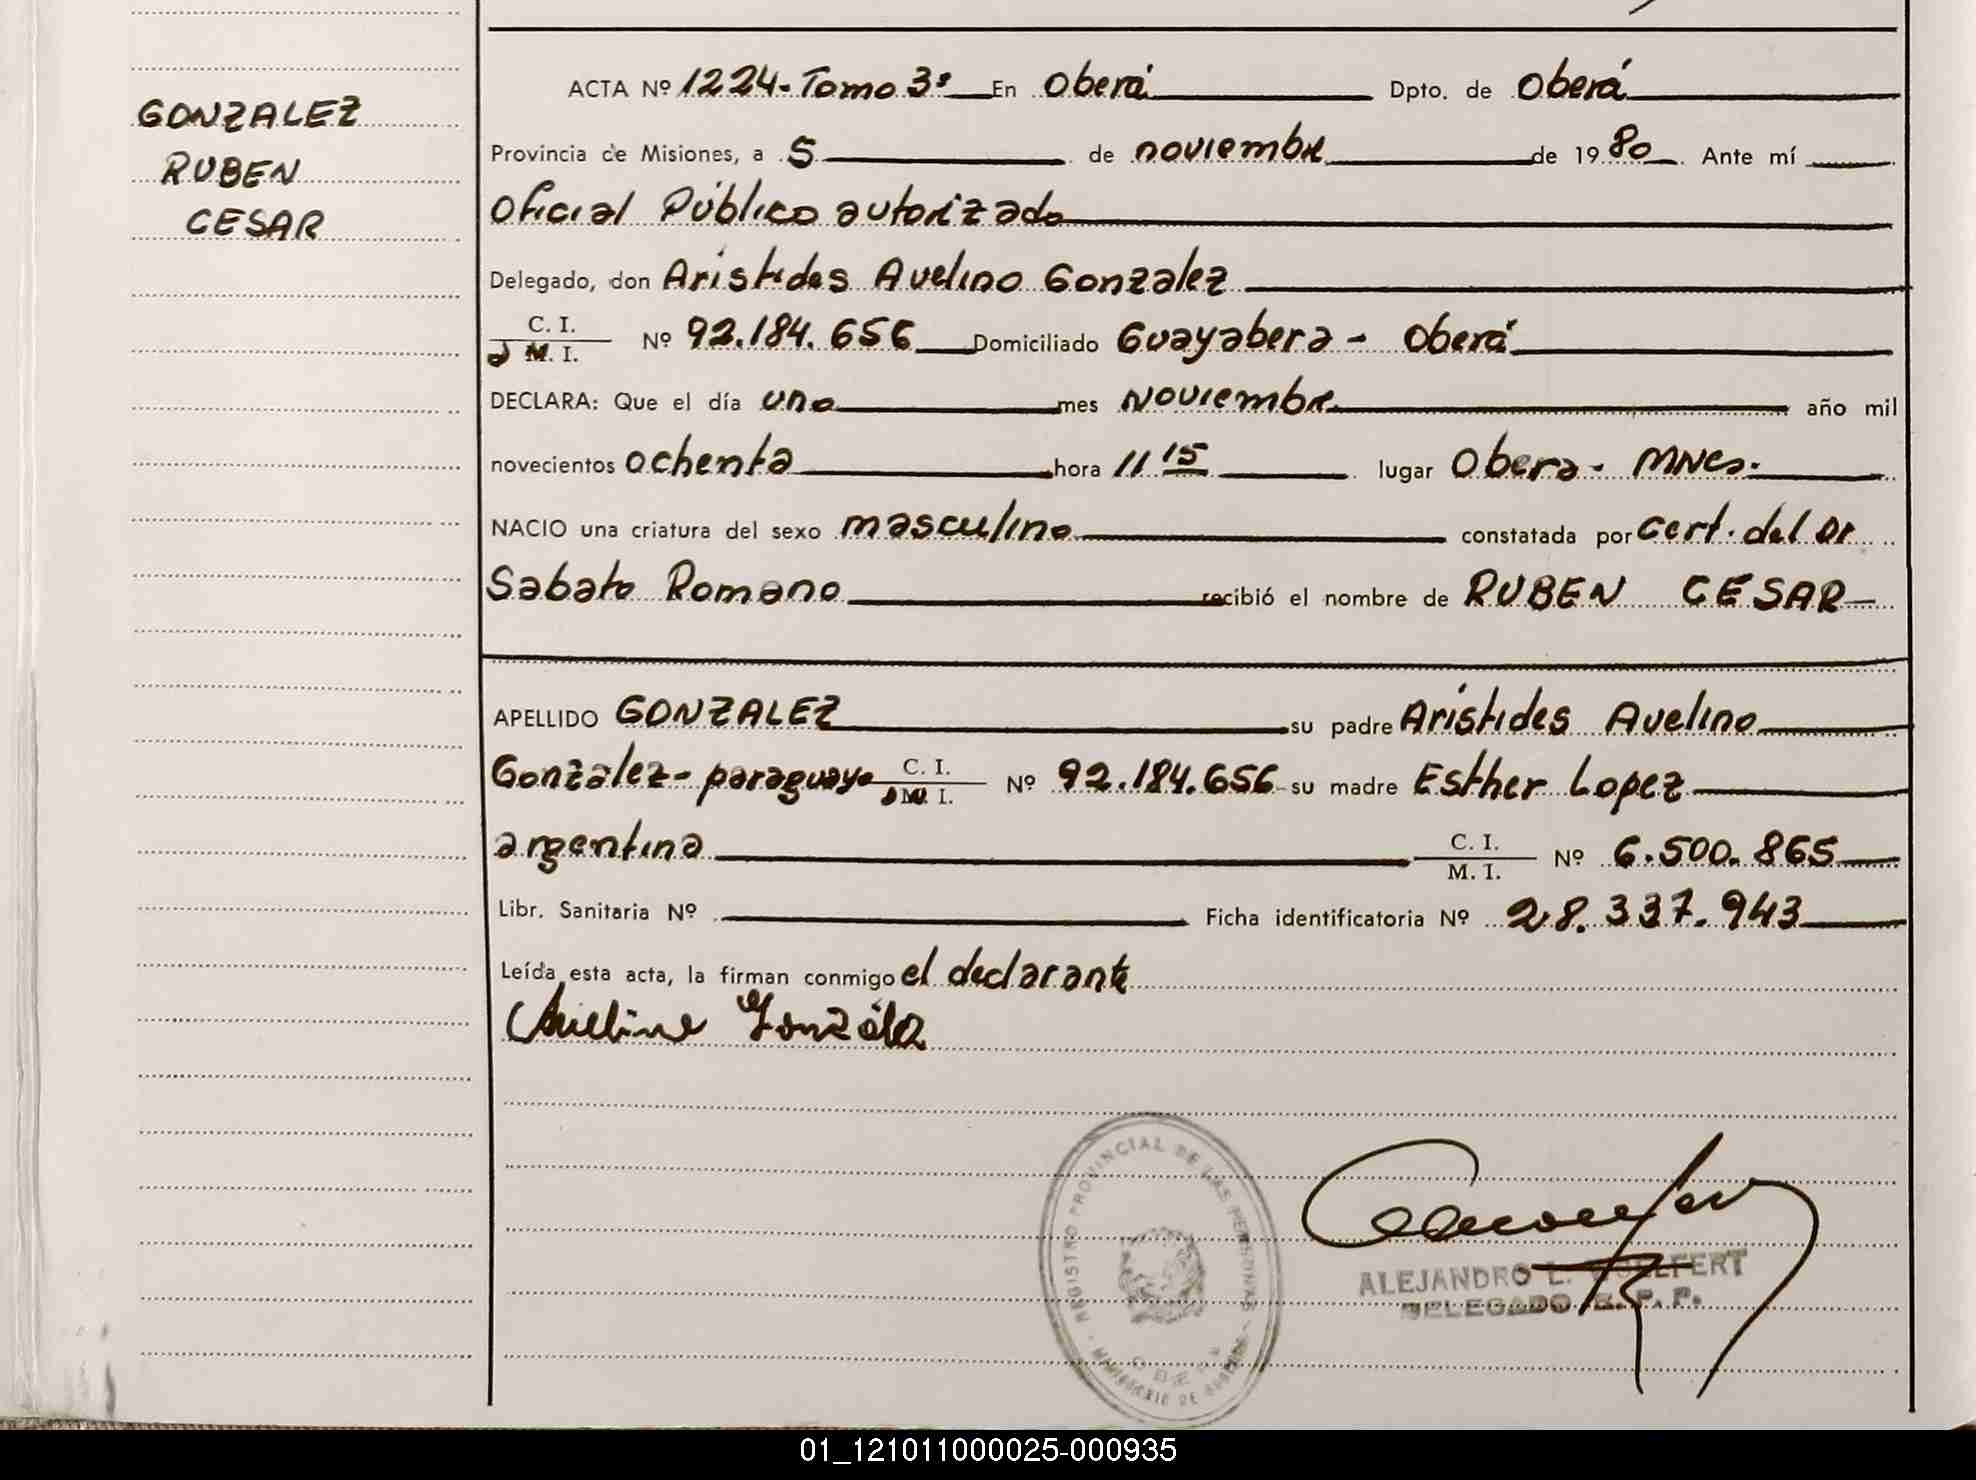 GONZALEZ
RUBEN
CESAR
ACTA Nº 1224-Tomo 3º En Oberá Dpto. de Oberá
Provincia de Misiones, a 5 de noviembre de 1980. Ante mí
Oficial Público autorizado
Delegado, don Arístides Avelino Gonzalez
C. I.
M. I. Nº 92.184.656 Domiciliado Guayabera - Oberá
DECLARA: Que el día uno mes Noviembre año mil
novecientos ochenta hora 11 15 lugar Obera - Mnes.
NACIO una criatura del sexo masculino constatada por cert. del Dr
Sabato Romano recibió el nombre de RUBEN CESAR
APELLIDO GONZALEZ su padre Arístides Avelino
González - paraguayo C. I. M. I. Nº 92.184.656 su madre Esther Lopez
argentina C. I. M. I. Nº 6.500.865
Libr. Sanitaria Nº Ficha identificatoria Nº 28.337.943
Leída esta acta, la firman conmigo el declarante
Avelino González
REGISTRO PROVINCIAL DE LAS PERSONAS
MINISTERIO DE GOBIERNO
ALEJANDRO L.
DELEGADO R. P. P.
01_121011000025-000935